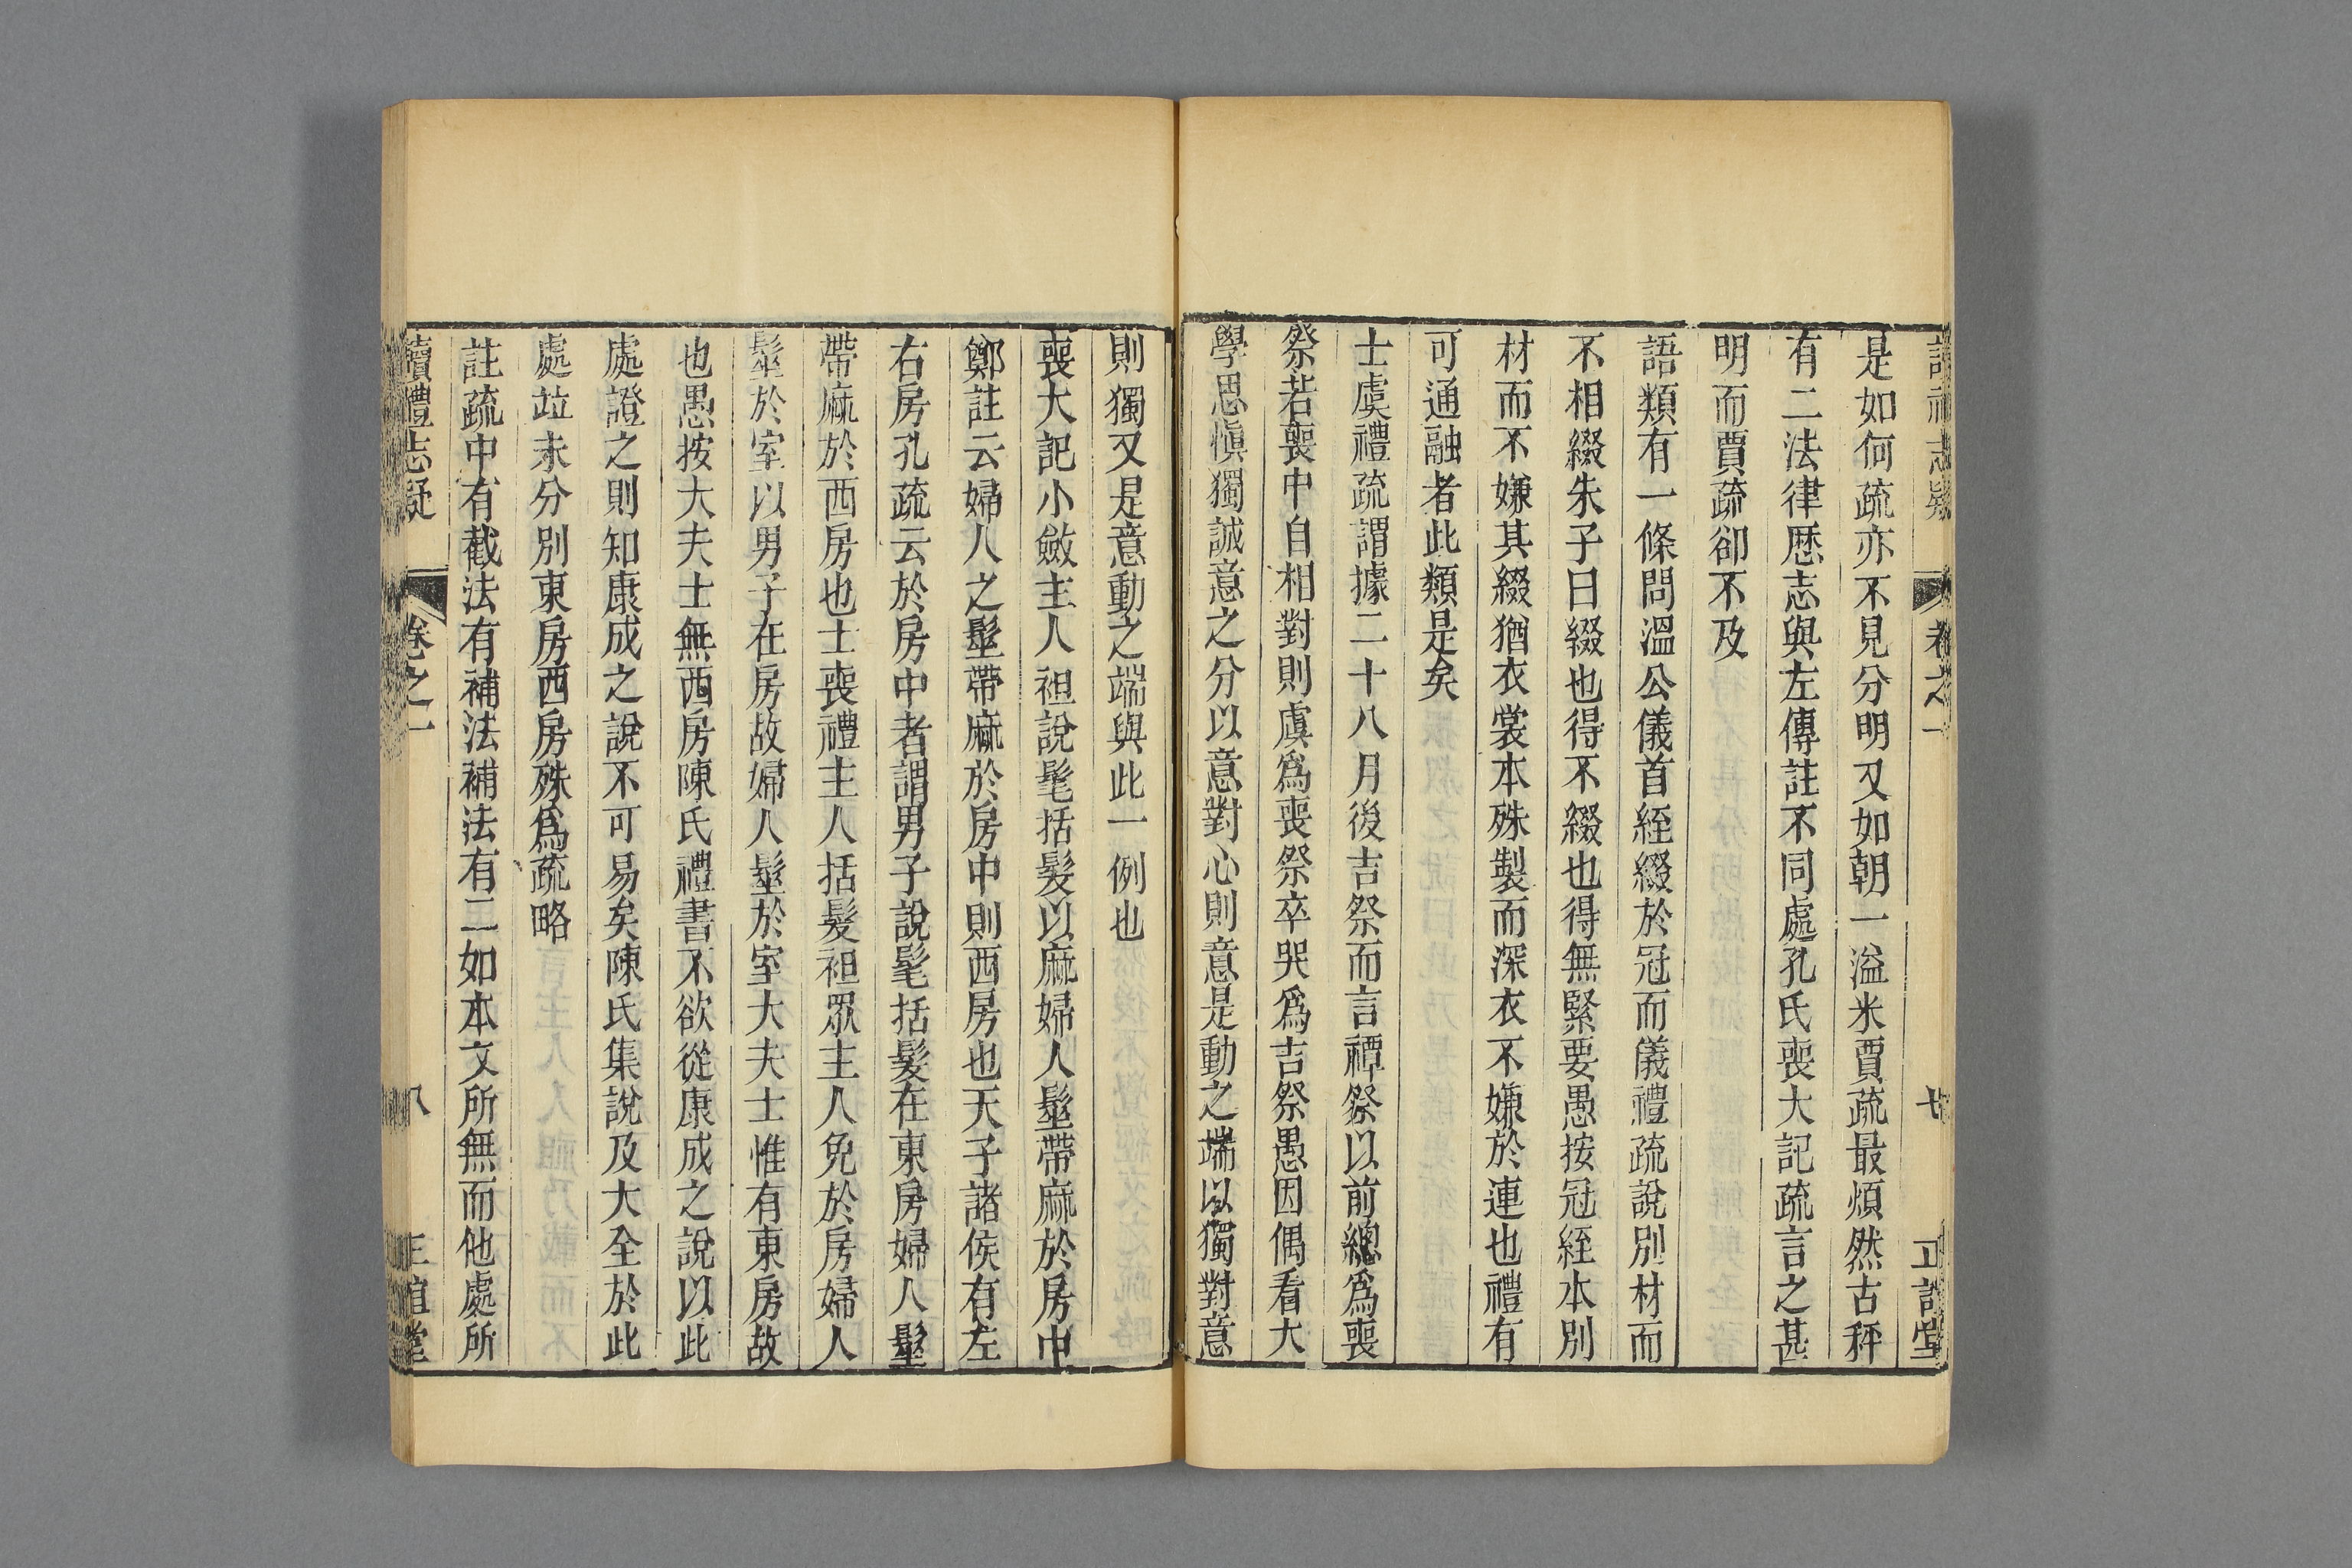 讀禮志疑 卷之一 七 正誼堂
是如何疏亦不見分明又如朝一溢米賈疏最煩然古秤
有二法律歷志與左傳註不同處孔氏喪大記疏言之甚
明而賈疏卻不及
語類有一條問溫公儀首絰綴於冠而儀禮疏說別材而
不相綴朱子曰綴也得不綴也得無緊要愚按冠絰本別
材而不嫌其綴猶衣裳本殊製而深衣不嫌於連也禮有
可通融者此類是矣
士虞禮疏謂據二十八月後吉祭而言禫祭以前總爲喪
祭若喪中自相對則虞爲喪祭卒哭爲吉祭愚因偶看大
學思愼獨誠意之分以意對心則意是動之端以獨對意
則獨又是意動之端與此一例也
喪大記小斂主人袒說髦括髮以麻婦人髽帶麻於房中
鄭註云婦人之髽帶麻於房中則西房也天子諸侯有左
右房孔疏云於房中者謂男子說髦括髮在東房婦人髽
帶麻於西房也士喪禮主人括髮袒眾主人免於房婦人
髽於室以男子在房故婦人髽於室大夫士惟有東房故
也愚按大夫士無西房陳氏禮書不欲從康成之說以此
處證之則知康成之說不可易矣陳氏集說及大全於此
處竝未分別東房西房殊爲疏略
註疏中有截法有補法補法有二如本文所無而他處所
讀禮志疑 卷之一 八 正誼堂